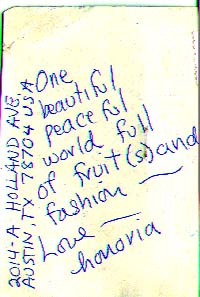 2014-A HOLLAND AVE.
AUSTIN, TX 78704 USA
One
beautiful
peaceful
world full
of fruit(s) and
fashion
Love
honoria